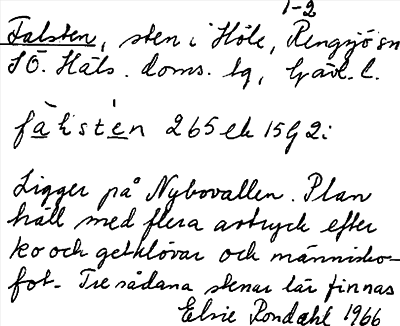 1-2
Falsten, sten i Höle, Rengsjö sn
SÖ. Häls. doms. lg, Gävl. l.
fa̲ksté̲n 265 ek 15G 2i
Ligger på Nybovallen. Plan
häll med flera avtryck efter
ko och getklövar och människo-
fot. Tre sådana stenar lär finnas
Elsie Rondahl 1966